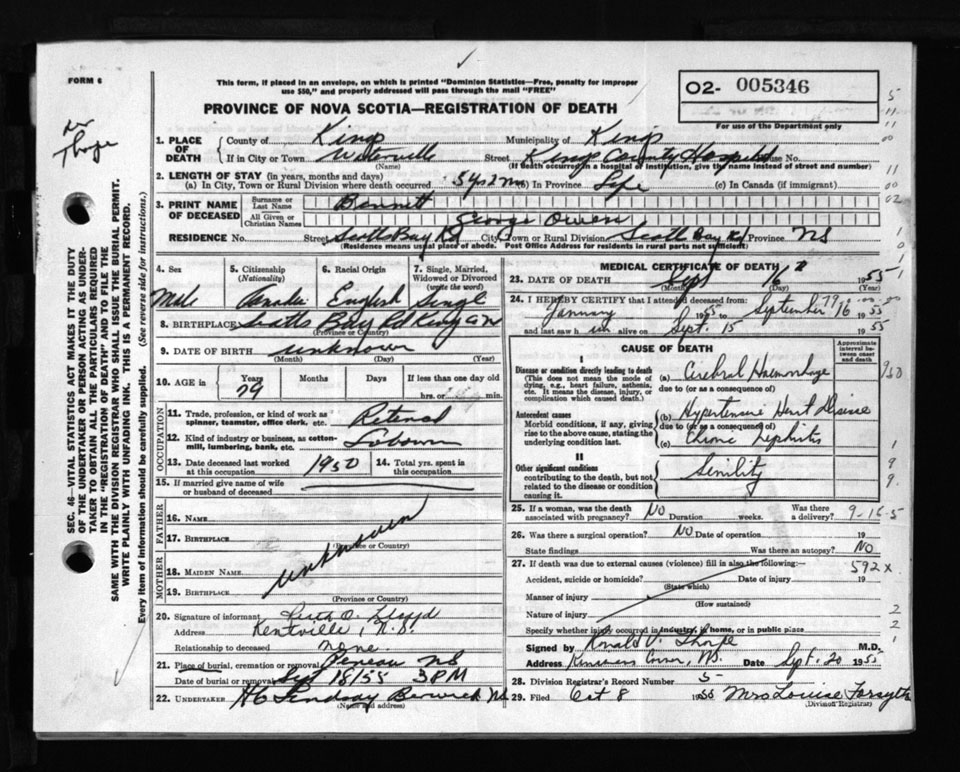 FORM 6
This form, if placed in an envelope, on which is printed "Dominion Statistics—Free, penalty for improper
use $50," and properly addressed will pass through the mail "FREE"
PROVINCE OF NOVA SCOTIA—REGISTRATION OF DEATH
O2- 005346
For use of the Department only
Thorpe
SEC. 46—VITAL STATISTICS ACT MAKES IT THE DUTY
OF THE UNDERTAKER OR PERSON ACTING AS UNDER-
TAKER TO OBTAIN ALL THE PARTICULARS REQUIRED
IN THE "REGISTRATION OF DEATH" AND TO FILE THE
SAME WITH THE DIVISION REGISTRAR WHO SHALL ISSUE THE BURIAL PERMIT.
WRITE PLAINLY WITH UNFADING INK. THIS IS A PERMANENT RECORD.
Every item of information should be carefully supplied. (See reverse side for instructions.)
1. PLACE OF DEATH
County of Kings Municipality of Kings
If in City or Town Waterville Street Kings County Hospital House No.
(Name) (If death occurred in a hospital or institution, give the name instead of street and number)
2. LENGTH OF STAY (in years, months and days)
(a) In City, Town or Rural Division where death occurred 5 yrs 2 ms (b) In Province Life (c) In Canada (if immigrant)
3. PRINT NAME OF DECEASED
Surname or Last Name Bennett
All Given or Christian Names George Owen
RESIDENCE No. Street Scotts Bay Rd City, Town or Rural Division Scotts Bay Rd Province NS
(Residence means usual place of abode. Post Office Address for residents in rural parts not sufficient)
4. Sex Male
5. Citizenship (Nationality) Canada
6. Racial Origin English
7. Single, Married, Widowed or Divorced (write the word) Single
8. BIRTHPLACE Scotts Bay Rd Kings Co NS
(Province or Country)
9. DATE OF BIRTH unknown
(Month) (Day) (Year)
10. AGE in Years 79 Months Days If less than one day old
hrs. or min.
OCCUPATION
11. Trade, profession, or kind of work as spinner, teamster, office clerk, etc. Retired
12. Kind of industry or business, as cotton-mill, lumbering, bank, etc. Labourer
13. Date deceased last worked at this occupation 1950 14. Total yrs. spent in this occupation
15. If married give name of wife or husband of deceased
FATHER
16. NAME
17. BIRTHPLACE
(Province or Country)
unknown
MOTHER
18. MAIDEN NAME
19. BIRTHPLACE
(Province or Country)
20. Signature of informant Lloyd
Address Kentville, N.S.
Relationship to deceased none
21. Place of burial, cremation or removal Pereau NS
Date of burial or removal Sept 18/55 3 PM
22. UNDERTAKER HC Lindsay Berwick NS
(Name and address)
MEDICAL CERTIFICATE OF DEATH
23. DATE OF DEATH Sept 1955
(Month) (Day) (Year)
24. I HEREBY CERTIFY that I attended deceased from:
January 1955 to September 16 1955
and last saw him alive on Sept. 15 1955
CAUSE OF DEATH
Approximate interval between onset and death
I
Disease or condition directly leading to death
(This does not mean the mode of dying, e.g., heart failure, asthenia, etc. It means the disease, injury, or complication which caused death.)
(a) Cerebral Haemorrhage
due to (or as a consequence of)
Antecedent causes
Morbid conditions, if any, giving rise to the above cause, stating the underlying condition last.
(b) Hypertensive Heart Disease
due to (or as a consequence of)
(c) Chronic Nephritis
II
Other significant conditions
contributing to the death, but not related to the disease or condition causing it.
Senility
25. If a woman, was the death associated with pregnancy? NO Duration weeks. Was there a delivery?
9-16-5
26. Was there a surgical operation? NO Date of operation 19
State findings Was there an autopsy? NO
27. If death was due to external causes (violence) fill in also the following:—
592x
Accident, suicide or homicide? Date of injury 19
(State which)
Manner of injury
(How sustained)
Nature of injury
Specify whether injury occurred in industry, in home, or in public place
Signed by Ronald Thorpe M.D.
Address NS. Date Sept. 20 1955
28. Division Registrar's Record Number 5
29. Filed Oct 8 1955 Mrs Louise Forsythe
(Division Registrar)